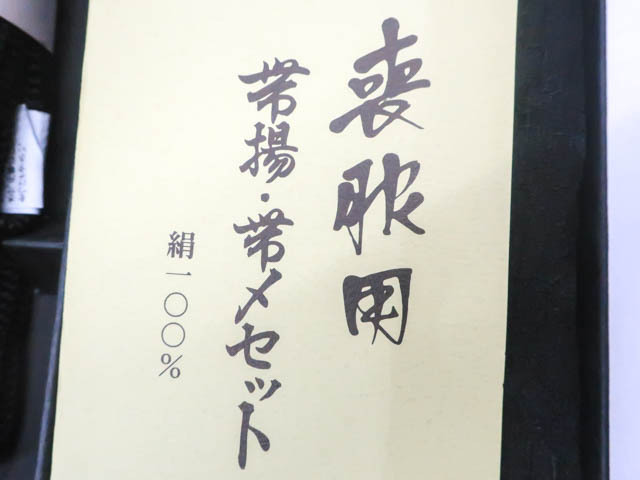 喪服用
帯揚・帯〆セット
絹一〇〇%